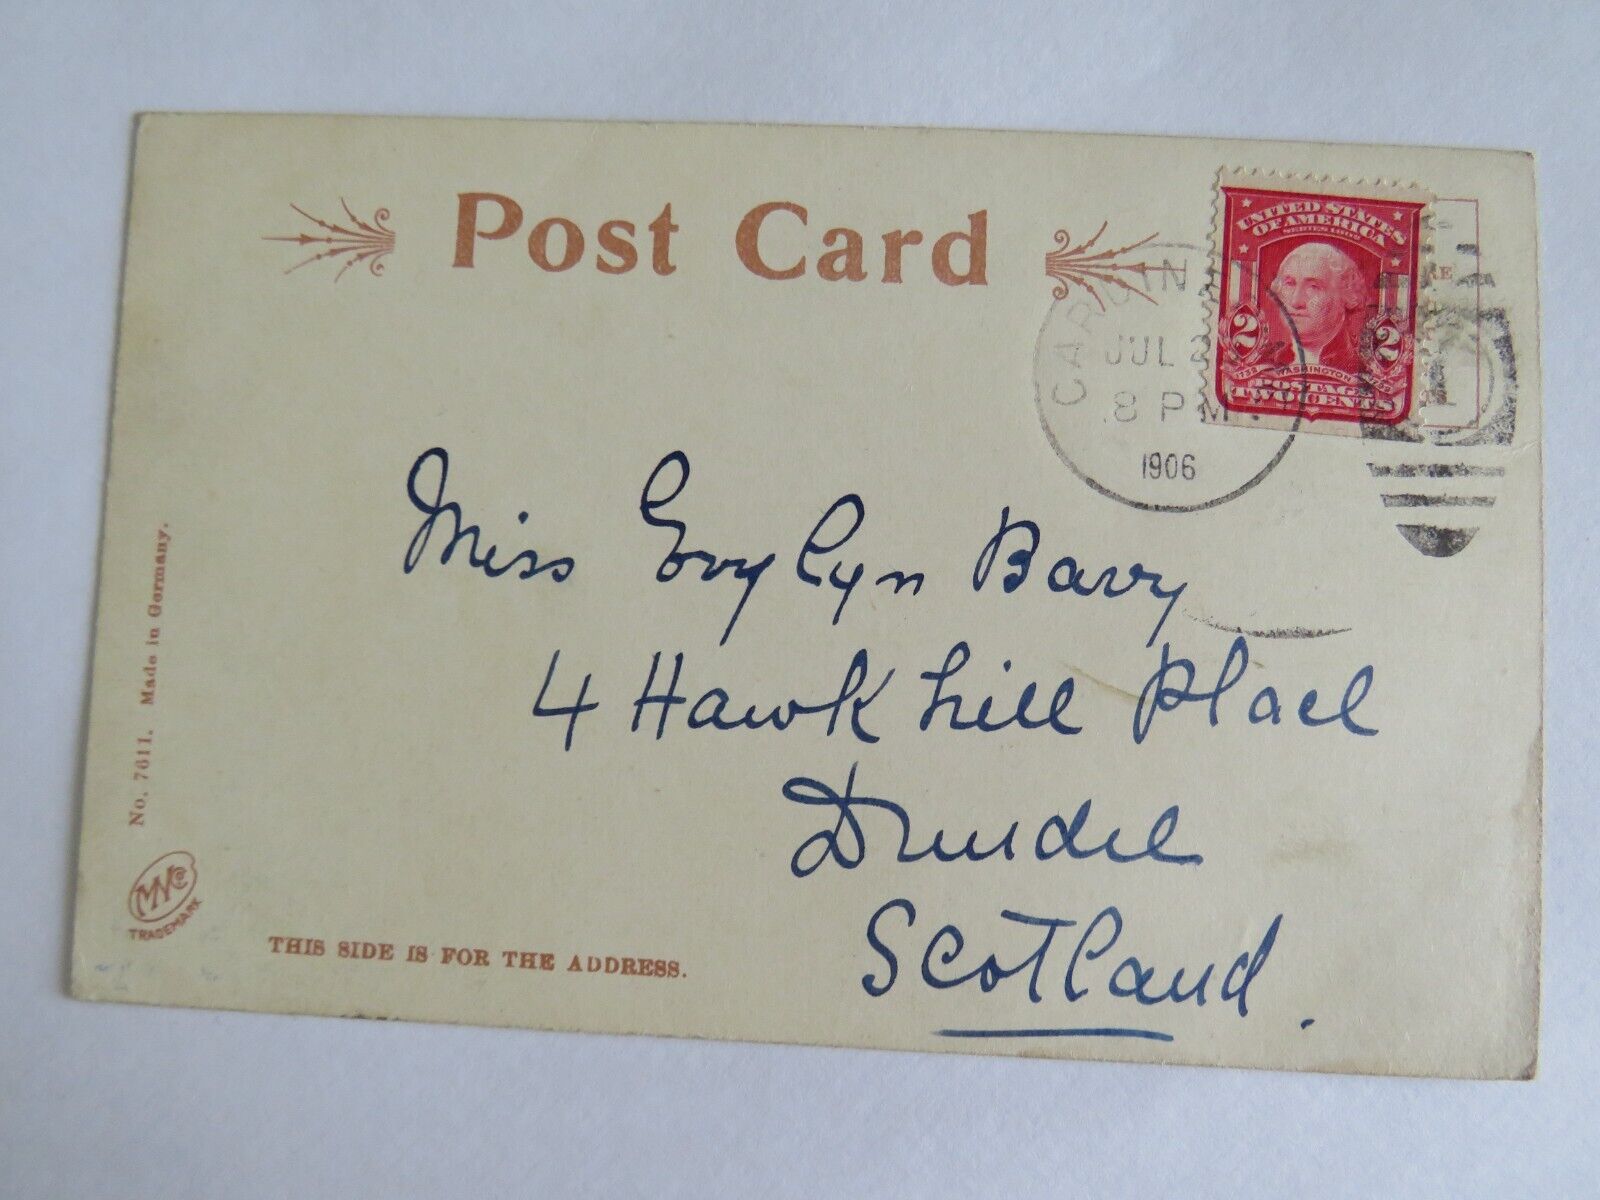 Post Card
UNITED STATES
OF AMERICA
SERIES 1902
2 2
1732 WASHINGTON 1799
POSTAGE
TWO CENTS
JUL
8 PM
1906
Miss Evylyn Barry
4 Hawkhill Place
Dundee
Scotland.
No. 7611. Made in Germany.
TRADEMARK
THIS SIDE IS FOR THE ADDRESS.